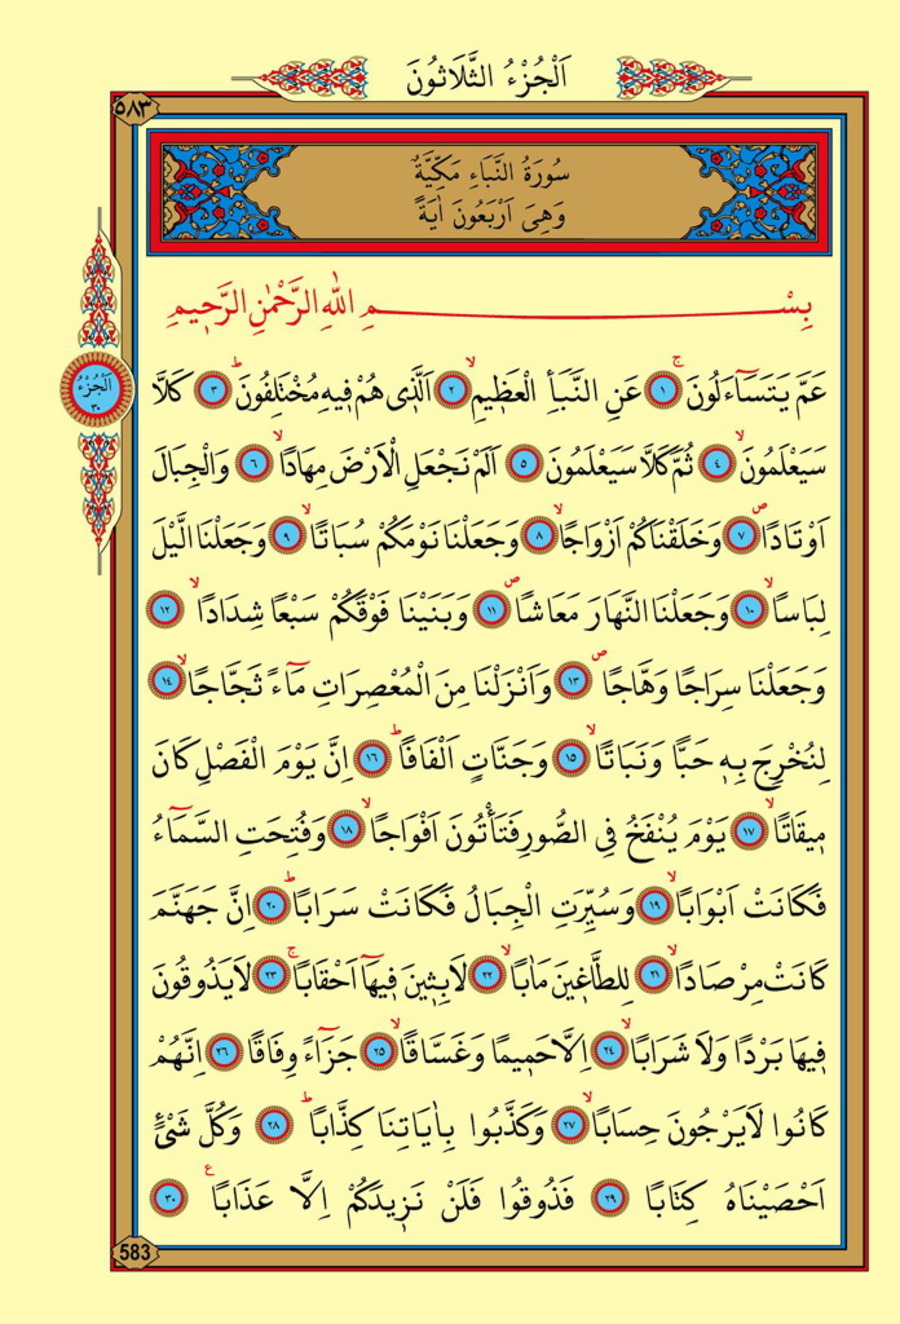 اَلْجُزْءُ الثَّلَاثُونَ
٥٨٣
سُورَةُ النَّبَاءِ مَكِّيَّةٌ
وَهِىَ اَرْبَعُونَ اٰيَةً
بِسْمِ اللّٰهِ الرَّحْمٰنِ الرَّحٖيمِ
اَلْجُزْءُ
٣٠
عَمَّ يَتَسَٓاءَلُونَۚ ﴿١﴾ عَنِ النَّبَأِ الْعَظٖيمِۙ ﴿٢﴾ اَلَّذٖى هُمْ فٖيهِ مُخْتَلِفُونَؕ ﴿٣﴾ كَلَّا
سَيَعْلَمُونَۙ ﴿٤﴾ ثُمَّ كَلَّا سَيَعْلَمُونَ ﴿٥﴾ اَلَمْ نَجْعَلِ الْاَرْضَ مِهَادًاۙ ﴿٦﴾ وَالْجِبَالَ
اَوْتَادًاۖ ﴿٧﴾ وَخَلَقْنَاكُمْ اَزْوَاجًاۙ ﴿٨﴾ وَجَعَلْنَا نَوْمَكُمْ سُبَاتًاۙ ﴿٩﴾ وَجَعَلْنَا الَّيْلَ
لِبَاسًاۙ ﴿١٠﴾ وَجَعَلْنَا النَّهَارَ مَعَاشًاۖ ﴿١١﴾ وَبَنَيْنَا فَوْقَكُمْ سَبْعًا شِدَادًاۙ ﴿١٢﴾
وَجَعَلْنَا سِرَاجًا وَهَّاجًاۖ ﴿١٣﴾ وَاَنْزَلْنَا مِنَ الْمُعْصِرَاتِ مَٓاءً ثَجَّاجًاۙ ﴿١٤﴾
لِنُخْرِجَ بِهٖ حَبًّا وَنَبَاتًاۙ ﴿١٥﴾ وَجَنَّاتٍ اَلْفَافًاؕ ﴿١٦﴾ اِنَّ يَوْمَ الْفَصْلِ كَانَ
مٖيقَاتًاۙ ﴿١٧﴾ يَوْمَ يُنْفَخُ فِى الصُّورِ فَتَأْتُونَ اَفْوَاجًاۙ ﴿١٨﴾ وَفُتِحَتِ السَّمَٓاءُ
فَكَانَتْ اَبْوَابًاۙ ﴿١٩﴾ وَسُيِّرَتِ الْجِبَالُ فَكَانَتْ سَرَابًاؕ ﴿٢٠﴾ اِنَّ جَهَنَّمَ
كَانَتْ مِرْصَادًاۙ ﴿٢١﴾ لِلطَّاغٖينَ مَاٰبًاۙ ﴿٢٢﴾ لَابِثٖينَ فٖيهَٓا اَحْقَابًاۚ ﴿٢٣﴾ لَا يَذُوقُونَ
فٖيهَا بَرْدًا وَلَا شَرَابًاۙ ﴿٢٤﴾ اِلَّا حَمٖيمًا وَغَسَّاقًاۙ ﴿٢٥﴾ جَزَٓاءً وِفَاقًا ﴿٢٦﴾ اِنَّهُمْ
كَانُوا لَا يَرْجُونَ حِسَابًاۙ ﴿٢٧﴾ وَكَذَّبُوا بِاٰيَاتِنَا كِذَّابًاؕ ﴿٢٨﴾ وَكُلَّ شَىْءٍ
اَحْصَيْنَاهُ كِتَابًا ﴿٢٩﴾ فَذُوقُوا فَلَنْ نَزٖيدَكُمْ اِلَّا عَذَابًا ع ﴿٣٠﴾
583